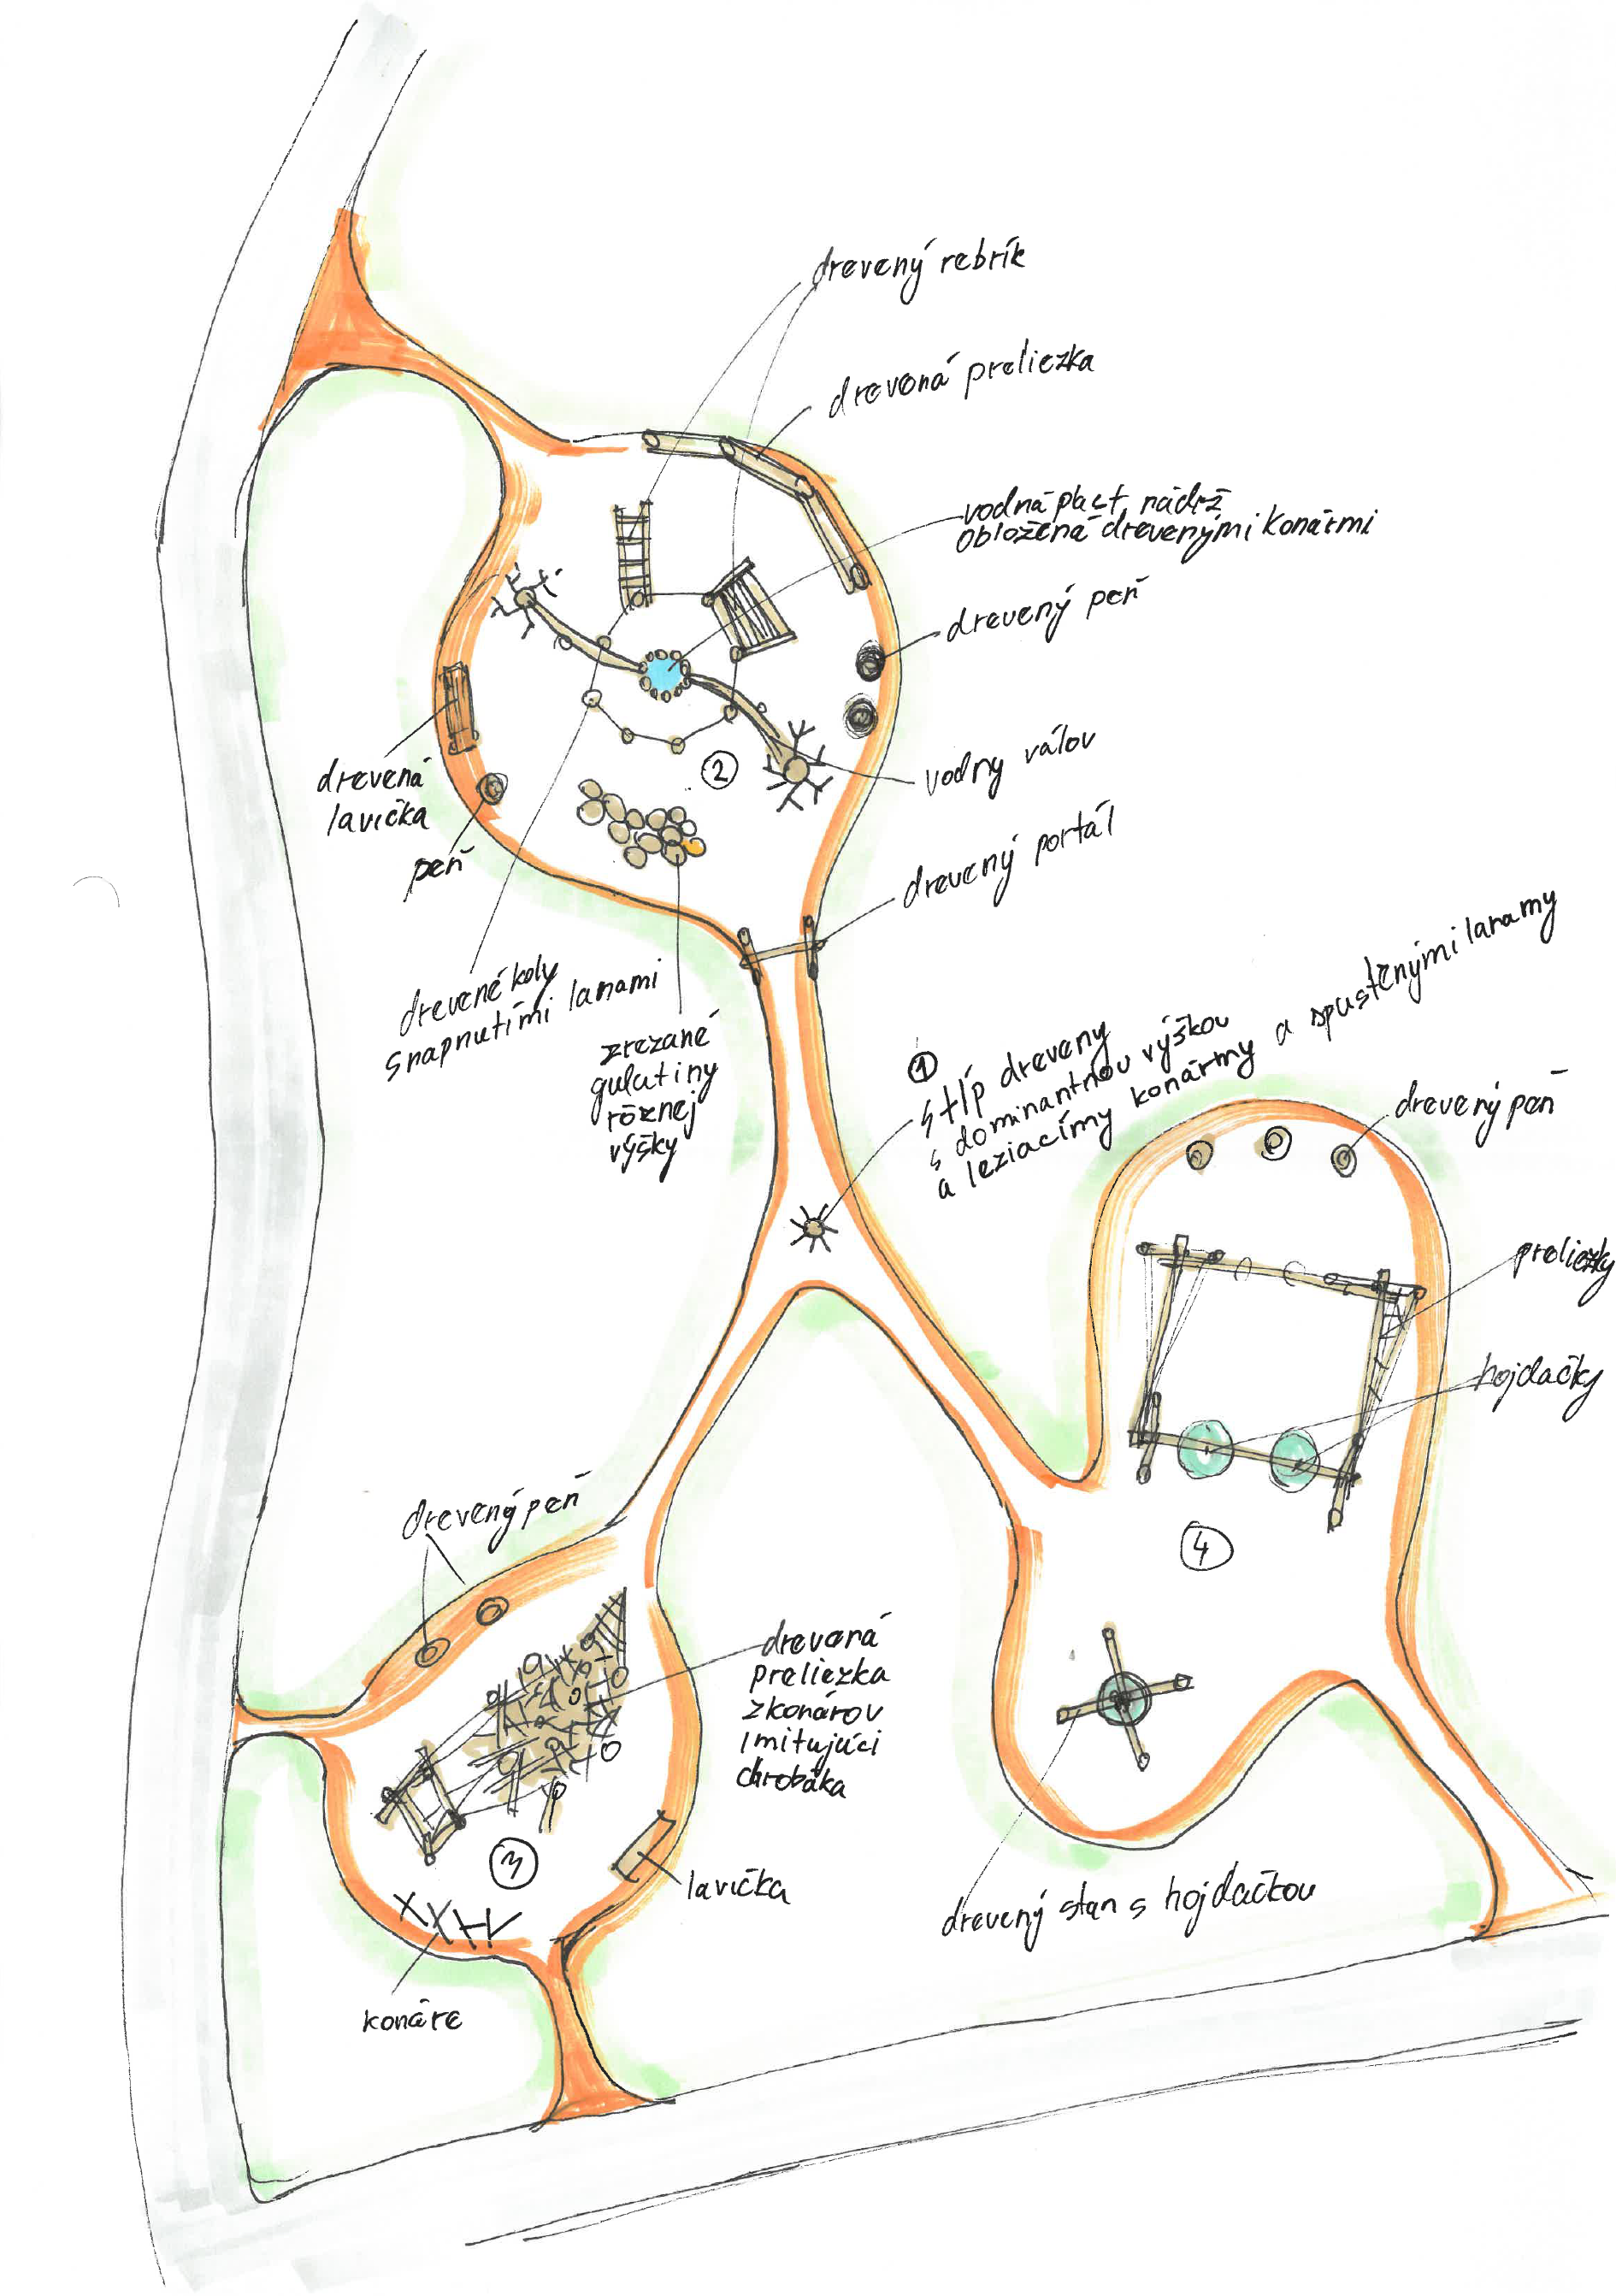 drevený rebrík
drevená preliezka
vodná plast. nádrž
obložená drevenými konármi
drevený peň
drevená
lavička
peň
vodny válov
drevený portál
drevené koly
s napnutími lanami
zrezané
gulatiny
rôznej
výšky
1
stĺp dreveny
s dominantnou výškou
a leziacímy konármy a spustenými lanamy
2
drevený peň
preliezky
hojdačky
4
drevený peň
drevená
preliezka
z konárov
imitujúci
chrobáka
3
lavička
konáre
drevený stan s hojdačkou